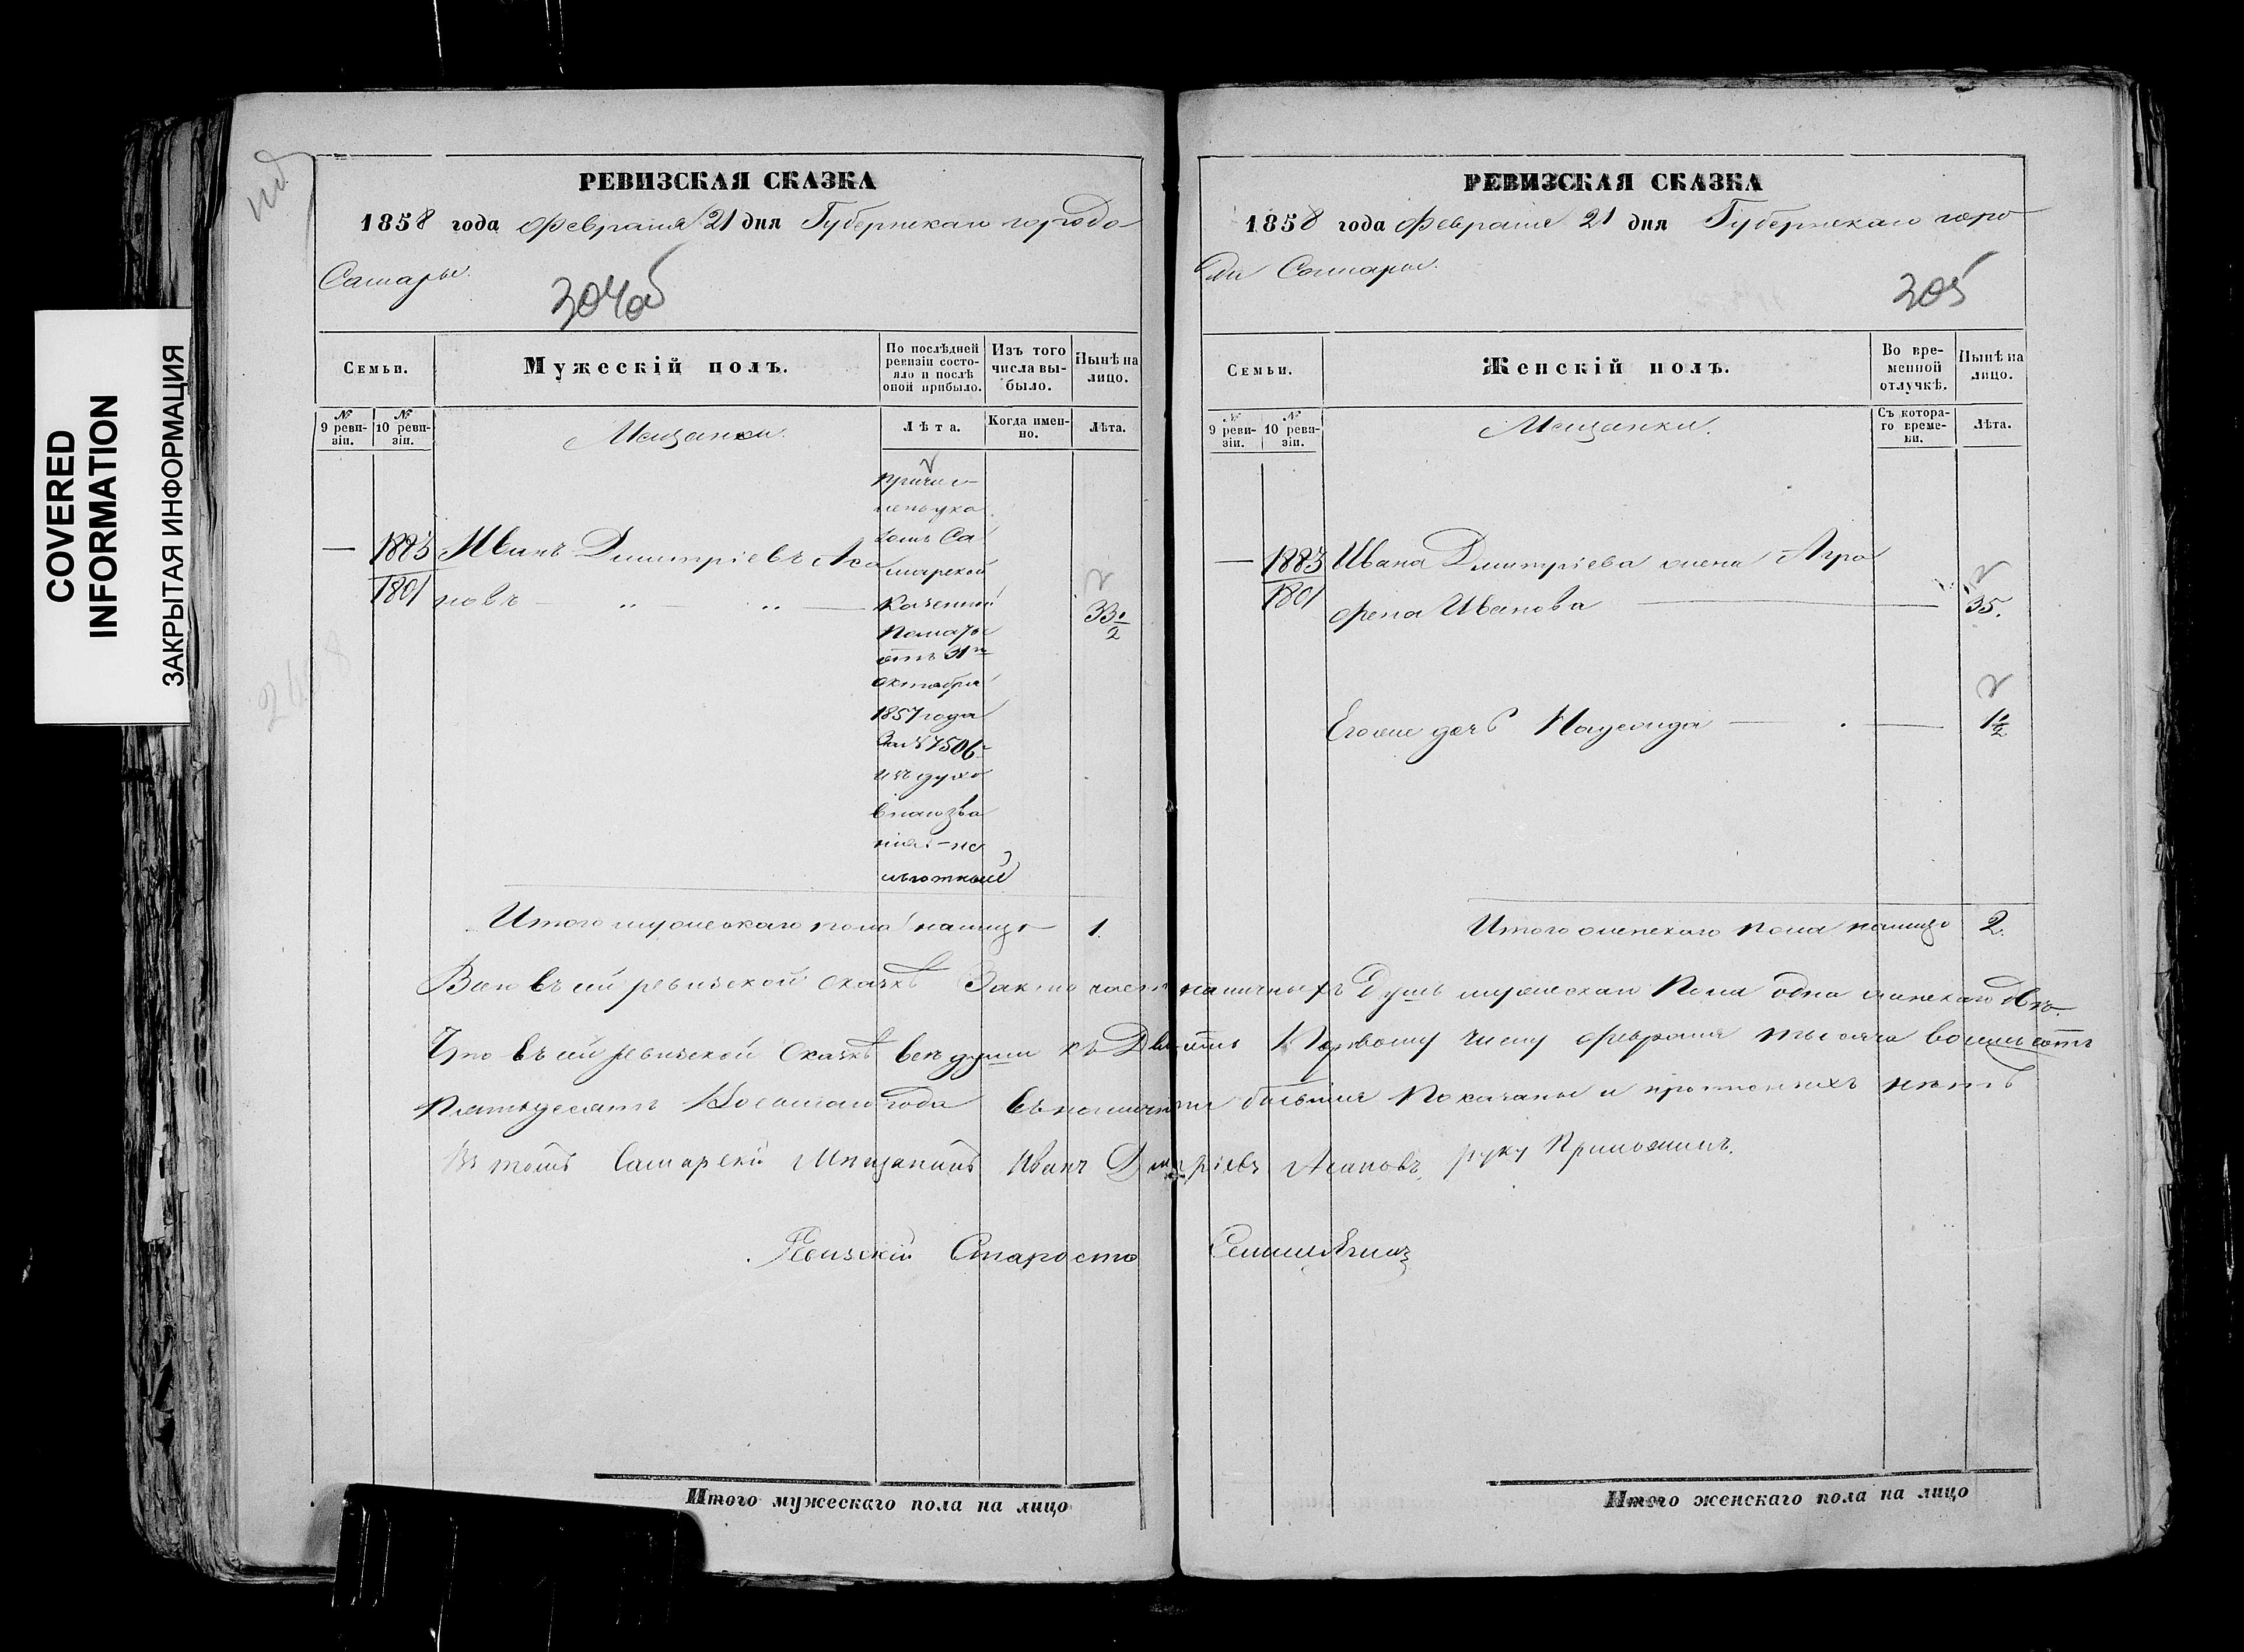 COVERED
INFORMATION
ЗАКРЫТАЯ ИНФОРМАЦИЯ
РЕВИЗСКАЯ СКАЗКА
1858 года Февраля 21 дня Губернскаго города
Самары.
304об
Семьи.
Мужескій полъ.
По послѣдней ревизіи состояло и послѣ оной прибыло.
Изъ того числа выбыло.
Нынѣ на лицо.
№ 9 ревизіи.
№ 10 ревизіи.
Мещанки.
Лѣта.
Когда именно.
Лѣта.
Причи-
сленъ ука
зомъ Са
марской
Казенной
Палаты
отъ 31го
октября
1857 года
За № 7506
изъ духо
внаго зва
нія - не
льготный
— 1883 Иванъ Дмитріевъ Аса
1801 новъ — „ — „ — 33 1/2
Итого мужескаго пола на лицо 1.
РЕВИЗСКАЯ СКАЗКА
1858 года Февраля 21 дня Губернскаго горо
да Самары.
305
Семьи.
Женскій полъ.
Во временной отлучкѣ.
Нынѣ на лицо.
№ 9 ревизіи.
№ 10 ревизіи.
Мещанки.
Съ котораго времени.
Лѣта.
— 1883 Ивана Дмитріева жена Агра
1801 фена Иванова — 35.
Его же дочь Надежда — 1 1/2
Итого женскаго пола на лицо 2.
Всего въ сей ревизской сказкѣ Заключается наличныхъ Душъ мужескаго Пола одна женскаго двѣ
Что въ сей ревизской Сказкѣ всѣ души къ Двадцать Первому числу февраля тысяча восемьсотъ
Пятьдесятъ Восьмаго года въ наличности бывшія Показаны и прописныхъ нѣтъ
Въ томъ Самарскій Мещанинъ Иванъ Дмитріевъ Асановъ, руку Приложилъ.
Ревизскій Староста
Итого мужескаго пола на лицо
Итого женскаго пола на лицо